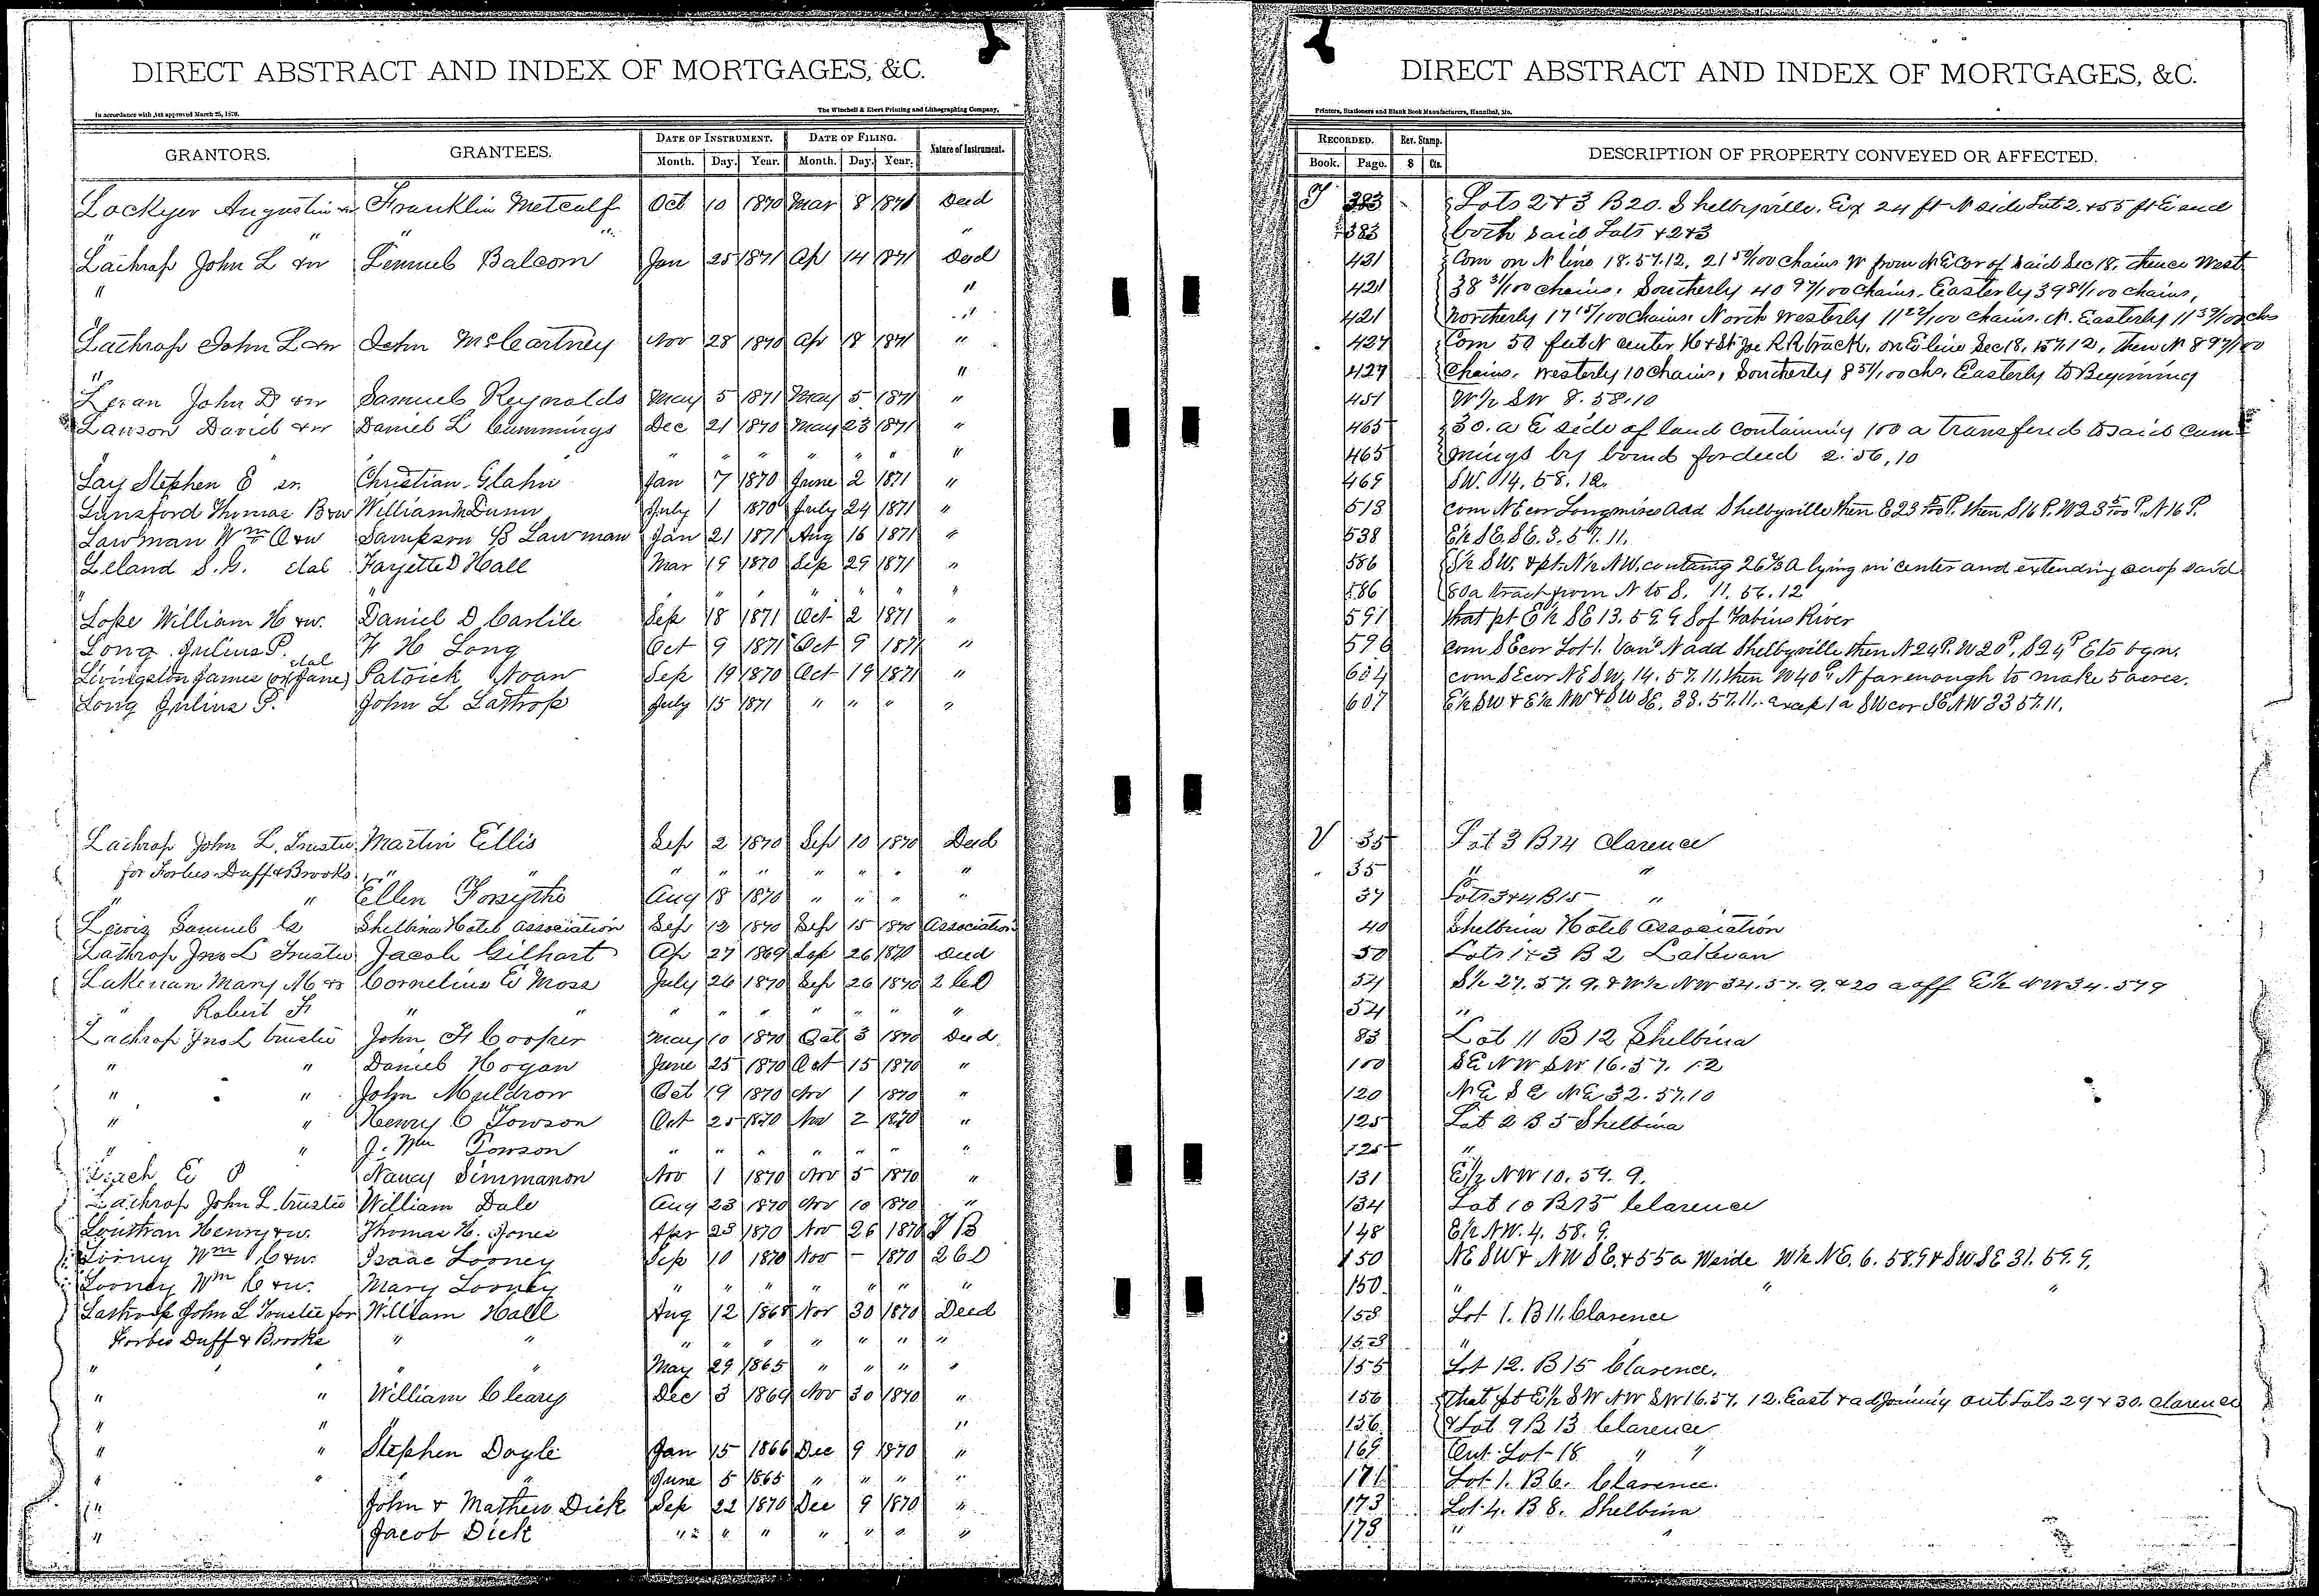 DIRECT ABSTRACT AND INDEX OF MORTGAGES, &C.
In accordance with Act approved March 25, 1870.
The Winchell & Ebert Printing and Lithographing Company,
GRANTORS. GRANTEES. DATE OF INSTRUMENT. DATE OF FILING. Nature of Instrument.
Month. Day. Year. Month. Day. Year.
Lockyer Augustin Franklin Metcalf Oct 10 1870 Mar 8 1871 Deed
" " " "
Lathrop John L &w Lemuel Balcom Jan 25 1871 Ap 14 1871 Deed
" "
"
Lathrop John L &w John McCartney Nov 28 1870 Ap 18 1871 "
" "
Levan John D &w Samuel Reynolds May 5 1871 May 5 1871 "
Lawson David &w Daniel L Cummings Dec 21 1870 May 23 1871 "
" " " " " " " "
Lay Stephen E Christian Glahn Jan 7 1870 June 2 1871 "
Lunsford Thomas B &w William M Dunn July 1 1870 July 24 1871 "
Lawman Wm A &w Sampson B Lawman Jan 21 1871 Aug 16 1871 "
Leland S. G. etal Fayette D Hall Mar 19 1870 Sep 29 1871 "
" " " " " " " "
Lope William H &w. Daniel D Carlile Sep 18 1871 Oct 2 1871 "
Long Julius P. F H Long Oct 9 1871 Oct 9 1871 "
etal
Livingston James (or Jane) Patrick Noan Sep 19 1870 Oct 19 1871 "
Long Julius P. John L Lathrop July 15 1871 " " " "
Lathrop John L. Trustee Martin Ellis Sep 2 1870 Sep 10 1870 Deed
for Forbes Duff & Brooks " " " " " " " "
" " Ellen Forsythe Aug 18 1870 " " " "
Lewis Samuel Shelbina Hotel Association Sep 12 1870 Sep 15 1870 Association
Lathrop Jno L Trustee Jacob Gilhart Ap 27 1869 Sep 26 1870 Deed
Lakenan Mary M & Cornelius E Moss July 26 1870 Sep 26 1870 2 C D
" Robert F " " " " " " " " "
Lathrop Jno L trustee John F Cooper May 10 1870 Oct 3 1870 Deed
" " Daniel Hogan June 25 1870 Oct 15 1870 "
" " John Muldrow Oct 19 1870 Nov 1 1870 "
" " Henry C Towson Oct 25 1870 Nov 2 1870 "
" " J. Wm Towson " " " " " " "
Leach E P Nancy Simmanon Nov 1 1870 Nov 5 1870 "
Lathrop John L. trustee William Dale Aug 23 1870 Nov 10 1870 "
Louthan Henry & w. Thomas H. Jones Apr 23 1870 Nov 26 1870 T B
Looney Wm C &w. Isaac Looney Sep 10 1870 Nov - 1870 2 C D
Looney Wm C &w. Mary Looney " " " " " " "
Lathrop John L Trustee for William Hall Aug 12 1868 Nov 30 1870 Deed
Forbes Duff & Brooks " " " " " " " " "
" " " " " May 29 1865 " " " "
" " William Cleary Dec 3 1869 Nov 30 1870 "
" " "
" " Stephen Doyle Jan 15 1866 Dec 9 1870 "
" " " " June 5 1865 " " " "
" John & Mathew Dick Sep 22 1870 Dec 9 1870 "
" Jacob Dick " " " " " " "
DIRECT ABSTRACT AND INDEX OF MORTGAGES, &C.
Printers, Stationers and Blank Book Manufacturers, Hannibal, Mo.
RECORDED. Rev. Stamp. DESCRIPTION OF PROPERTY CONVEYED OR AFFECTED.
Book. Page. $ Cts.
T 383 Lots 2 & 3 B 20. Shelbyville. Ex 24 ft N side Lot 2. & 55 ft E end
383 both said Lots & 2 & 3
421 Com on N line 18. 57. 12. 21 chains W from N E Cor of said Sec 18. thence West
421 38 31/100 chains. Southerly 40 97/100 Chains. Easterly 39 81/100 chains,
421 Northerly 17 15/100 Chains. North Westerly 11 22/100 chains. N. Easterly 11 chs
427 Com 50 feet N center H & St Joe R R track. on E line Sec 18. 57. 12, then N 8 97/100
427 Chains. Westerly 10 Chains, Southerly 8 51/100 chs. Easterly to Beginning
451 W½ SW 8. 58. 10
465 30. a E side of land containing 100 a transfered to said Cum
465 mings by bond for deed 2. 56, 10
469 SW. 14. 58. 12.
513 com N E cor Longmires Add Shelbyville then E 23 P. then S 16 P. W 23 P. N 16 P.
538 E½ SE. SE. 3. 57. 11.
586 S½ SW. & pt. N½ NW. containg 26⅔ A lying in center and extending acrop said
586 80 a tract from N to S. 11. 56. 12
591 that pt E½ SE 13. 59 9 S of Fabius River
596 com S E cor Lot 1. Vans N add Shelbyville then N 24 P. W 20 P, S 24 P E to bgn.
604 com S E cor N E S W, 14. 57. 11, then W 40 P N far enough to make 5 acres.
607 E½ SW & E½ NW & SW SE. 33. 57. 11. except 1 a SW cor SE NW 33 57. 11.
V 35 Lot 3 B 14 Clarence
35 " "
37 Lots 3 & 4 B 15 "
40 Shelbina Hotel Association
50 Lots 1 & 3 B 2 Lakenan
54 S½ 27. 57. 9. & W½ NW 34. 57. 9. & 20 a off E½ NW 34. 57 9
54 "
83 Lot 11 B 12 Shelbina
100 SE NW SW 16. 57. 12
120 NE SE NE 32. 57. 10
125 Lot 2 B 5 Shelbina
125 "
131 E½ NW 10. 59. 9.
134 Lot 10 B 15 Clarence
148 E½ NW. 4. 58. 9.
150 NE SW & NW SE. & 55 a W side W½ NE. 6. 58. 9 & SW SE 31. 59. 9.
150 " " "
153 Lot 1. B 11. Clarence
153 "
155 Lot 12. B 15 Clarence.
156 That pt E½ SW NW SW 16. 57. 12. East & adjoining out Lots 29 & 30. Clarence
156 & Lot 9 B 13 Clarence
169 Out Lot 18 " "
171 Lot 1. B 6. Clarence.
173 Lot 4. B 8. Shelbina
173 " "